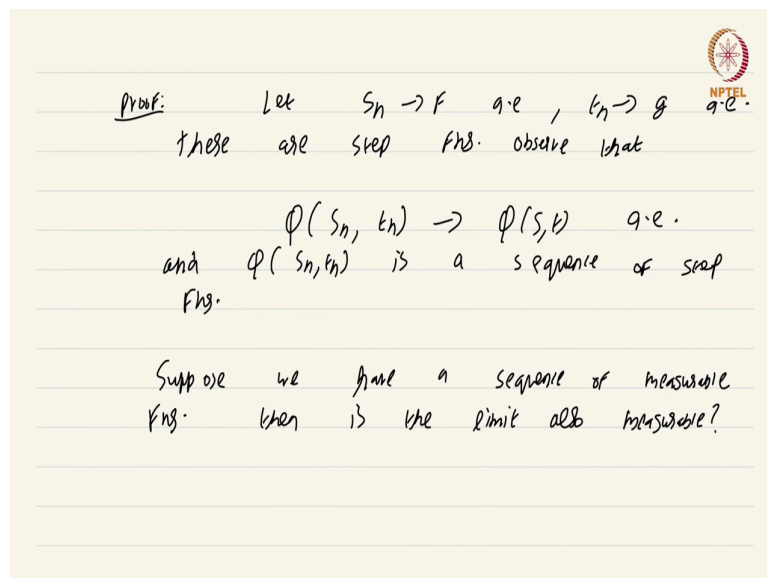 Proof: Let Sn → F a.e, tn → g a.e.
NPTEL
these are step Fns. observe that
φ(Sn, tn) → φ(S,t) a.e.
and φ(Sn,tn) is a sequence of step
Fns.
Suppose we have a sequence of measurable
Fns. then is the limit also measurable?